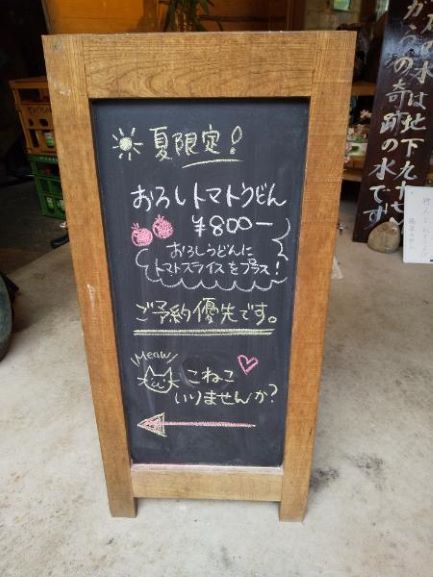 夏限定!
おろしトマトうどん
¥800-
おろしうどんに
トマトスライスをプラス!
ご予約優先です。
Meow
こねこ
いりませんか?
の水は地下九十
らの奇跡の水です